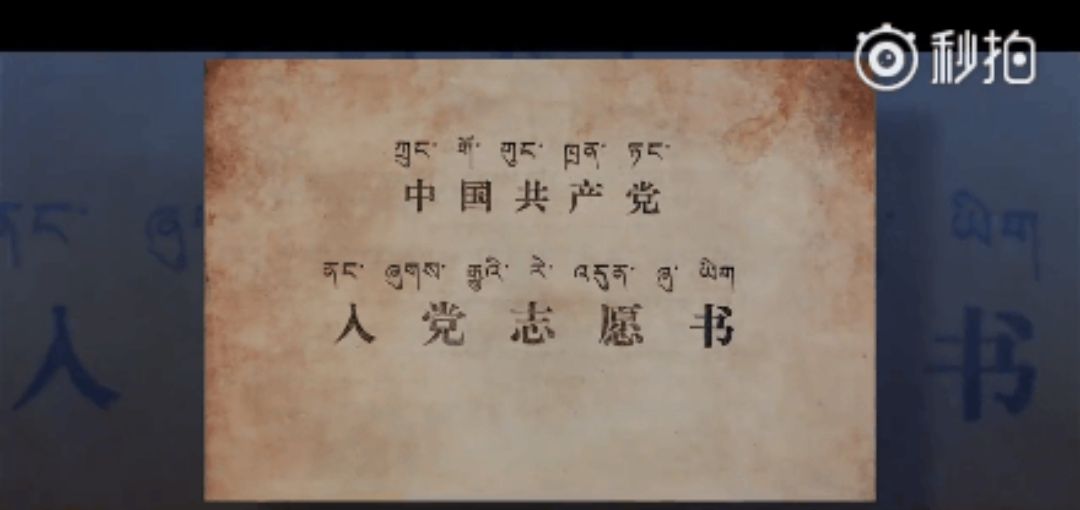 秒拍
ཀྲུང་ གོ་ གུང་ ཁྲན་ ཏང་
中国共产党
ནང་ ཞུགས་ རྒྱུའི་ རེ་ འདུན་ ཞུ་ ཡིག
入党志愿书